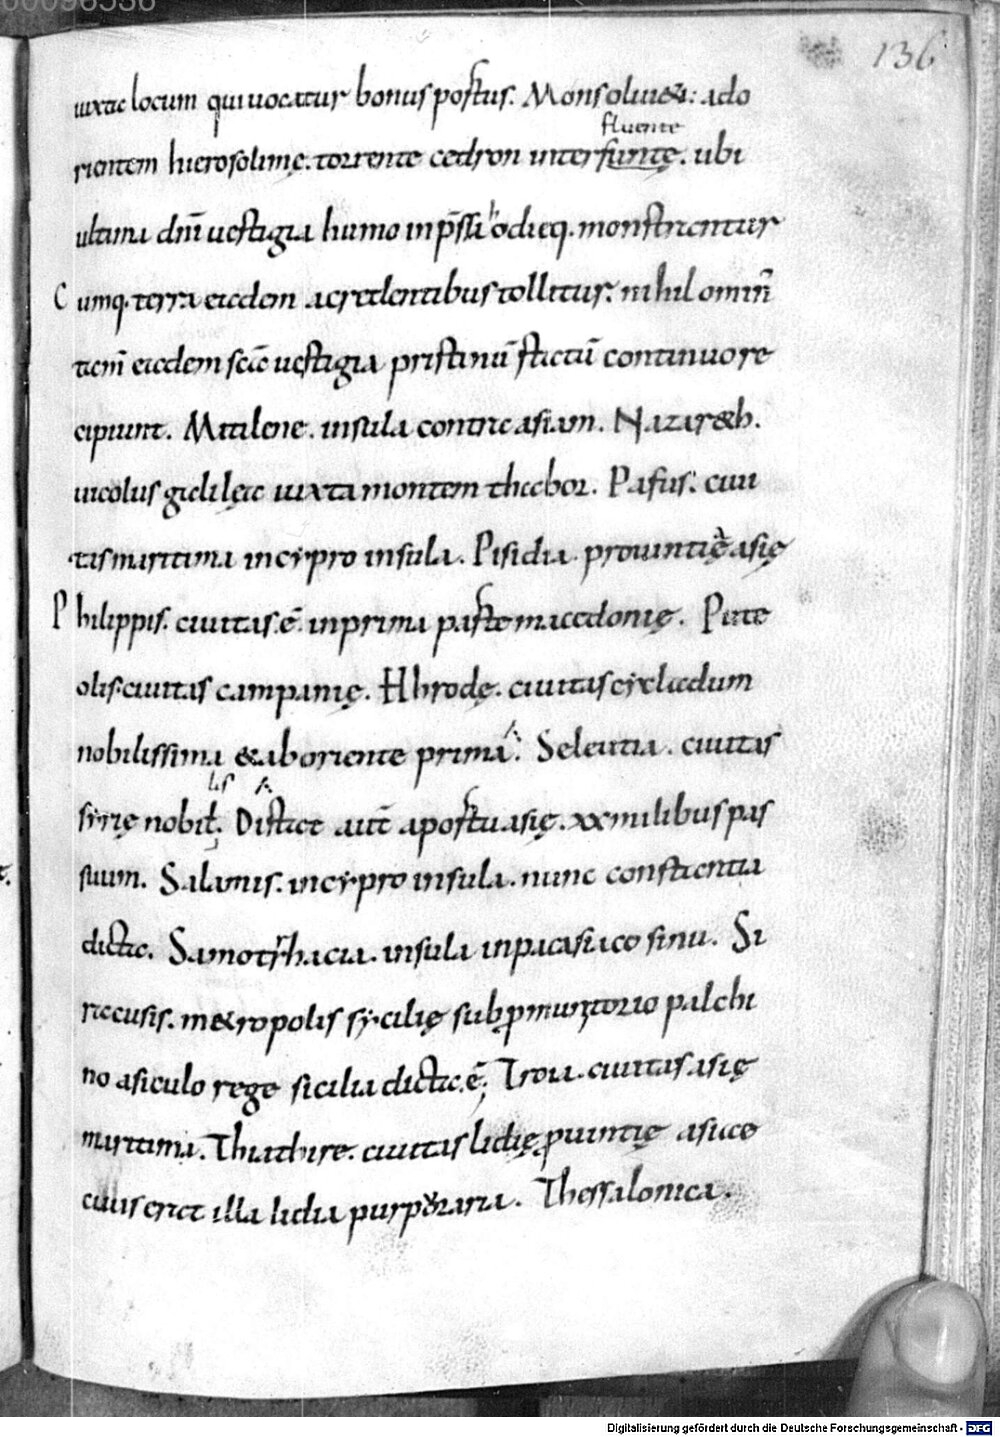 00096536
136
iuxta locum qui uocatur bonus portus. Mons oliueti: ado
fluente
rientem hierosolimę. torrente cedron interfuntę. ubi
ultima dn̄i uestigia humo inp̄ssa hodieq. monstrantur
Cumq. terra eadem acredentibus tollitur. nihil omin̄
tam̄ eadem scā uestigia pristinū statū continuo re
cipiunt. Mitilene. insula contra asiam. Nazareth.
uicolus galilęę iuxta montem thabor. Pafus. ciui
tas maritima in cypro insula. Pisidia. prouintię asię
Philippis. ciuitas. ē. in prima parte macedonię. Pute
olis. ciuitas campanię. Hhrodę. ciuitas cycladum
nobilissima & ab oriente prima. Seleutia. ciuitas
lis
syrię nobil. Distat aut̄ a portu asię. xx milibus pas
suum. Salamis. in cypro insula. nunc constantia
dicta. Samotrhacia. insula in pacasiaco sinu. Si
racusis. metropolis sycilię sub promuntorio palchi
no a siculo rege sicilia dicta. ē; Troia. ciuitas asię
maritima. Thiathire. ciuitas lidię prouintię asiace
cuius erat illa lidia purporaria. Thessalonica.
Digitalisierung gefördert durch die Deutsche Forschungsgemeinschaft - DFG